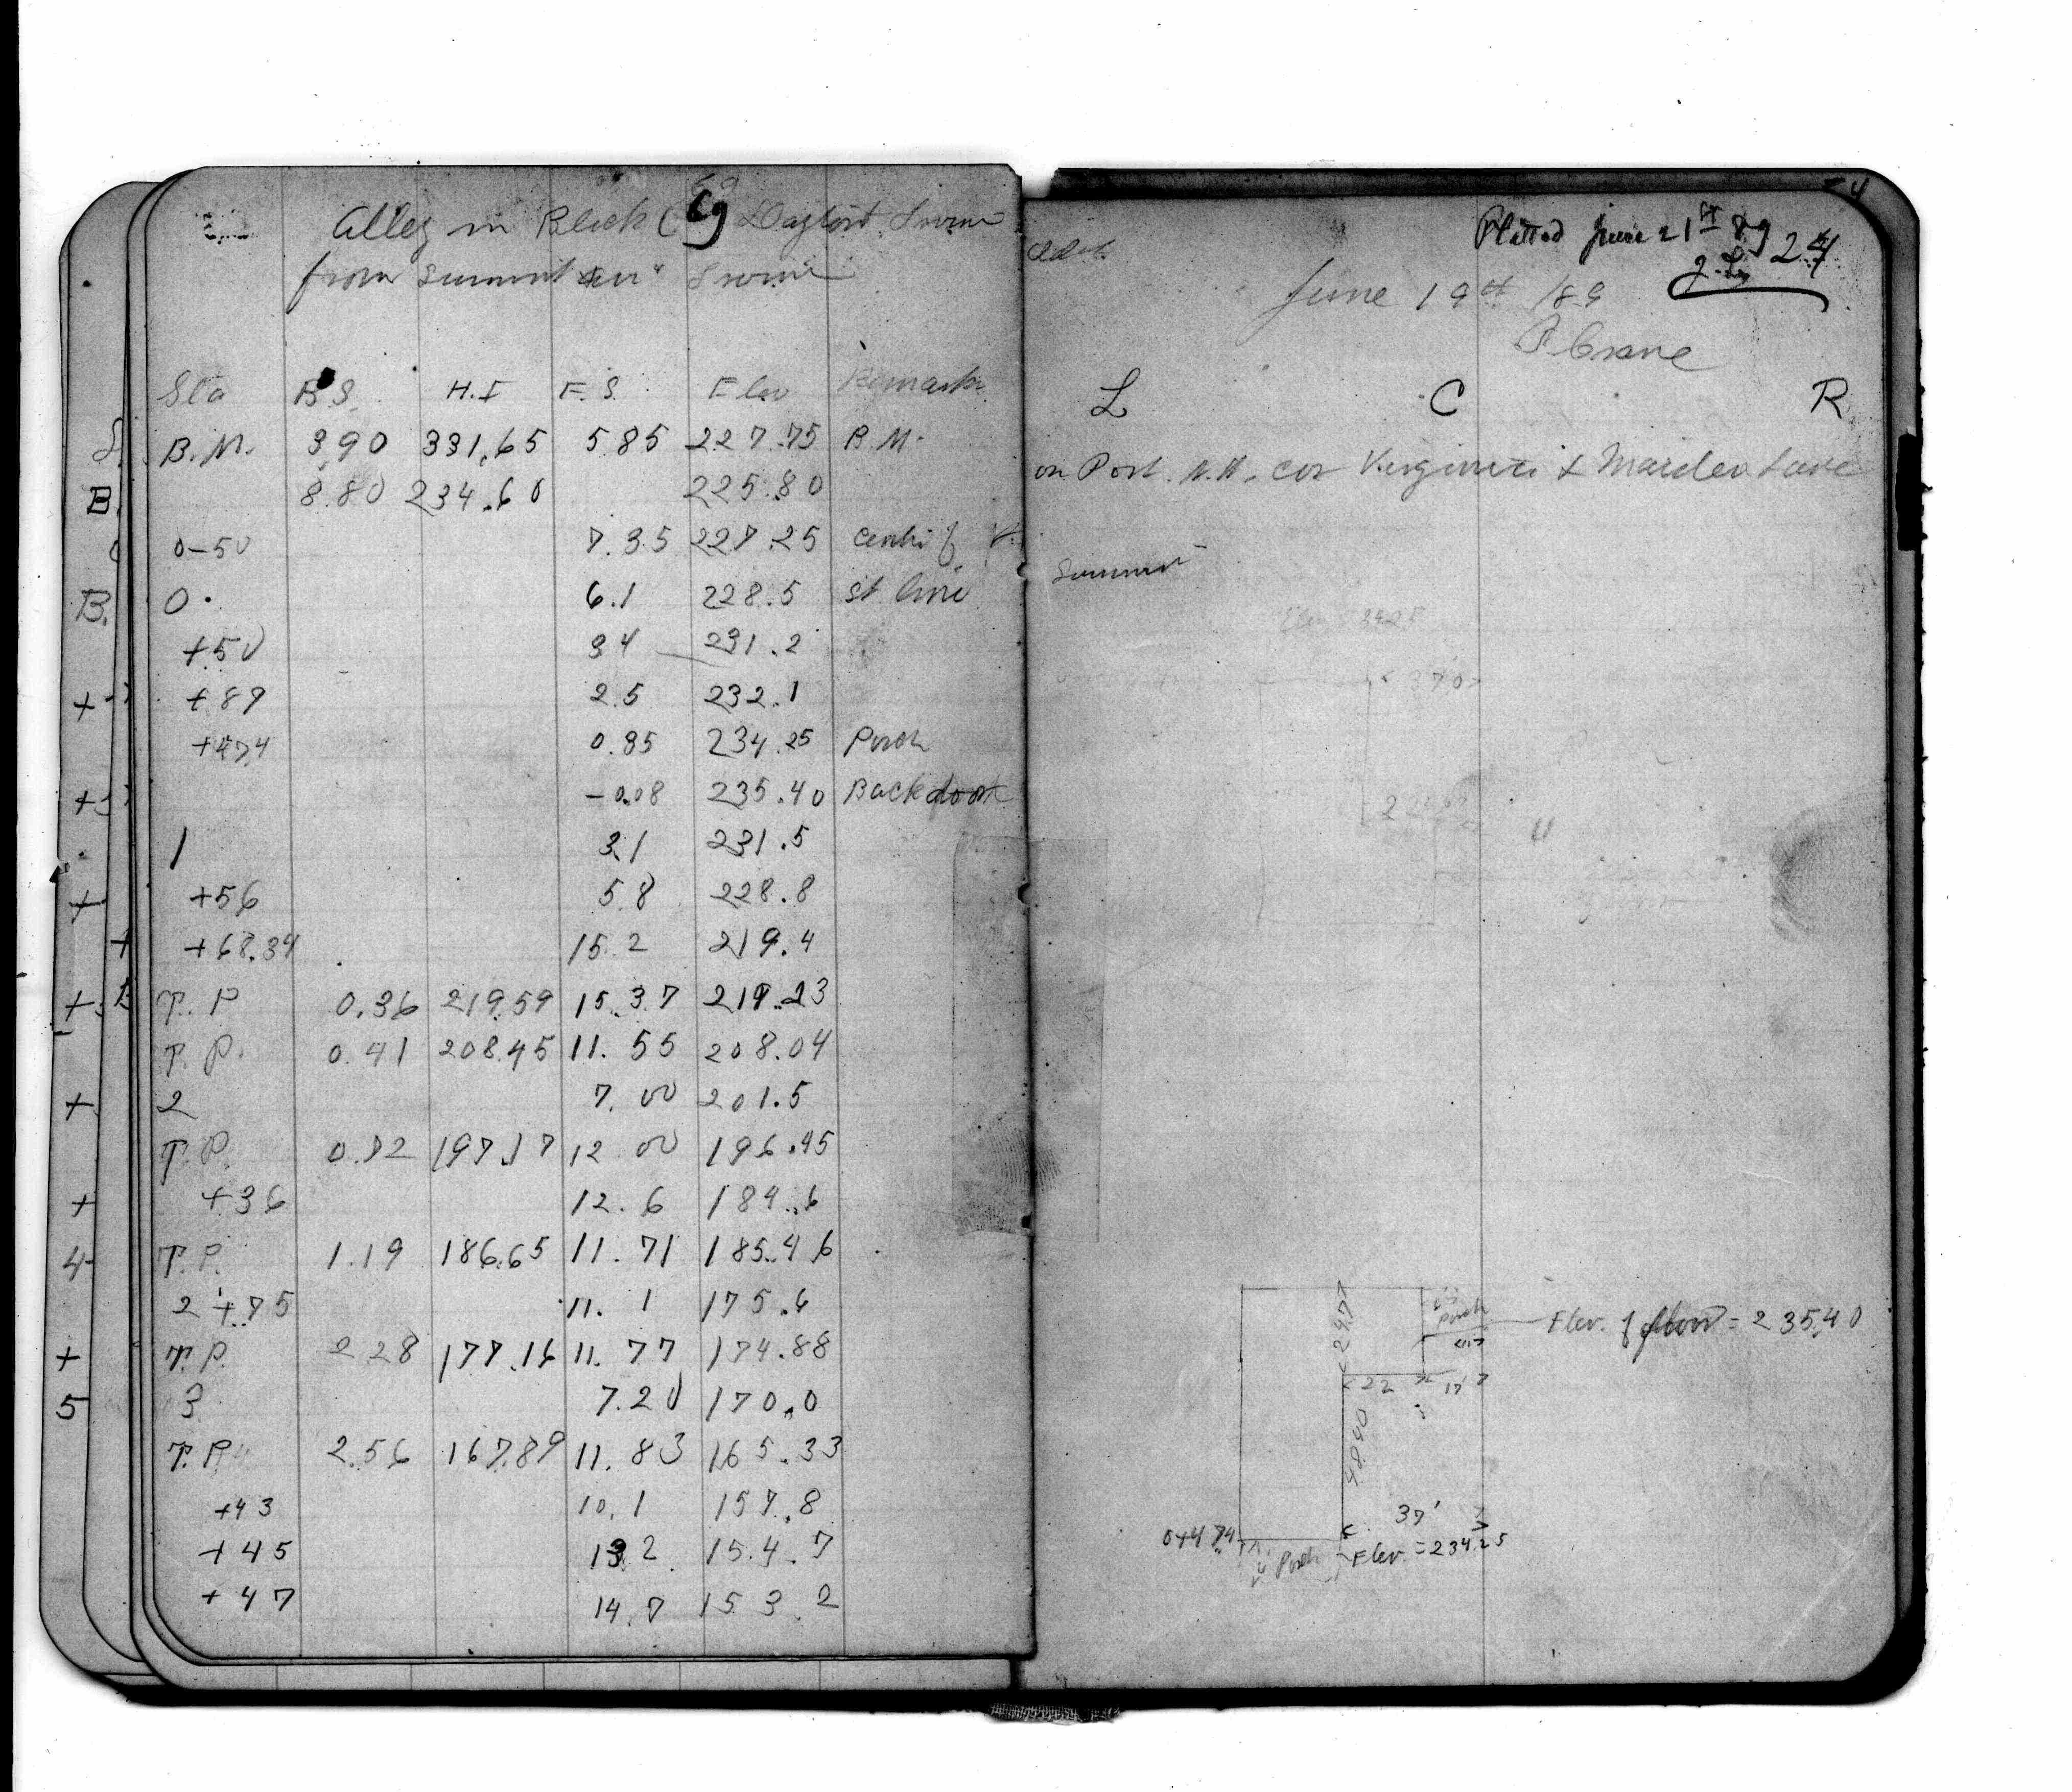 Alley in Block 69 Dayton & Irvine
from Summit Av. Irvine
Sta B.S. H.I F.S. Elev Remarks
B.M. 3.90 331.65 5.85 227.75 B.M.
8.80 234.60 225.80
0-50 7.35 227.25 Centr of
0. 6.1 228.5 St line
+50 3 4 231.2
+89 2.5 232.1
+4.74 0.85 234.25 Porch
-0.08 235.40 Back door
1 3.1 231.5
+56 5.8 228.8
+68.34 15.2 219.4
T.P 0.36 219.59 15.37 219.23
T.P. 0.41 208.45 11.55 208.04
2 7.00 201.5
T.P. 0.72 197.17 12 00 196.45
+36 12.6 184.6
T.P. 1.19 186.65 11.71 185.46
2+75 11.1 175.6
T.P. 2 28 177.16 11.77 174.88
3 7.20 170.0
T.P. 2.56 167.89 11.83 165.33
+43 10.1 157.8
+45 13 2 154.7
+47 14.7 153.2
Addn.
Platted June 21st 89
J.L. 24
June 19th /89
P Crane
L C R
on Post. N.W. cor Virginia & Maiden Lane
Summit
Porch
Elev. of floor = 235.40
29.77
22 17'
48.40
37'
0+4.74
Porch Elev. = 234.25